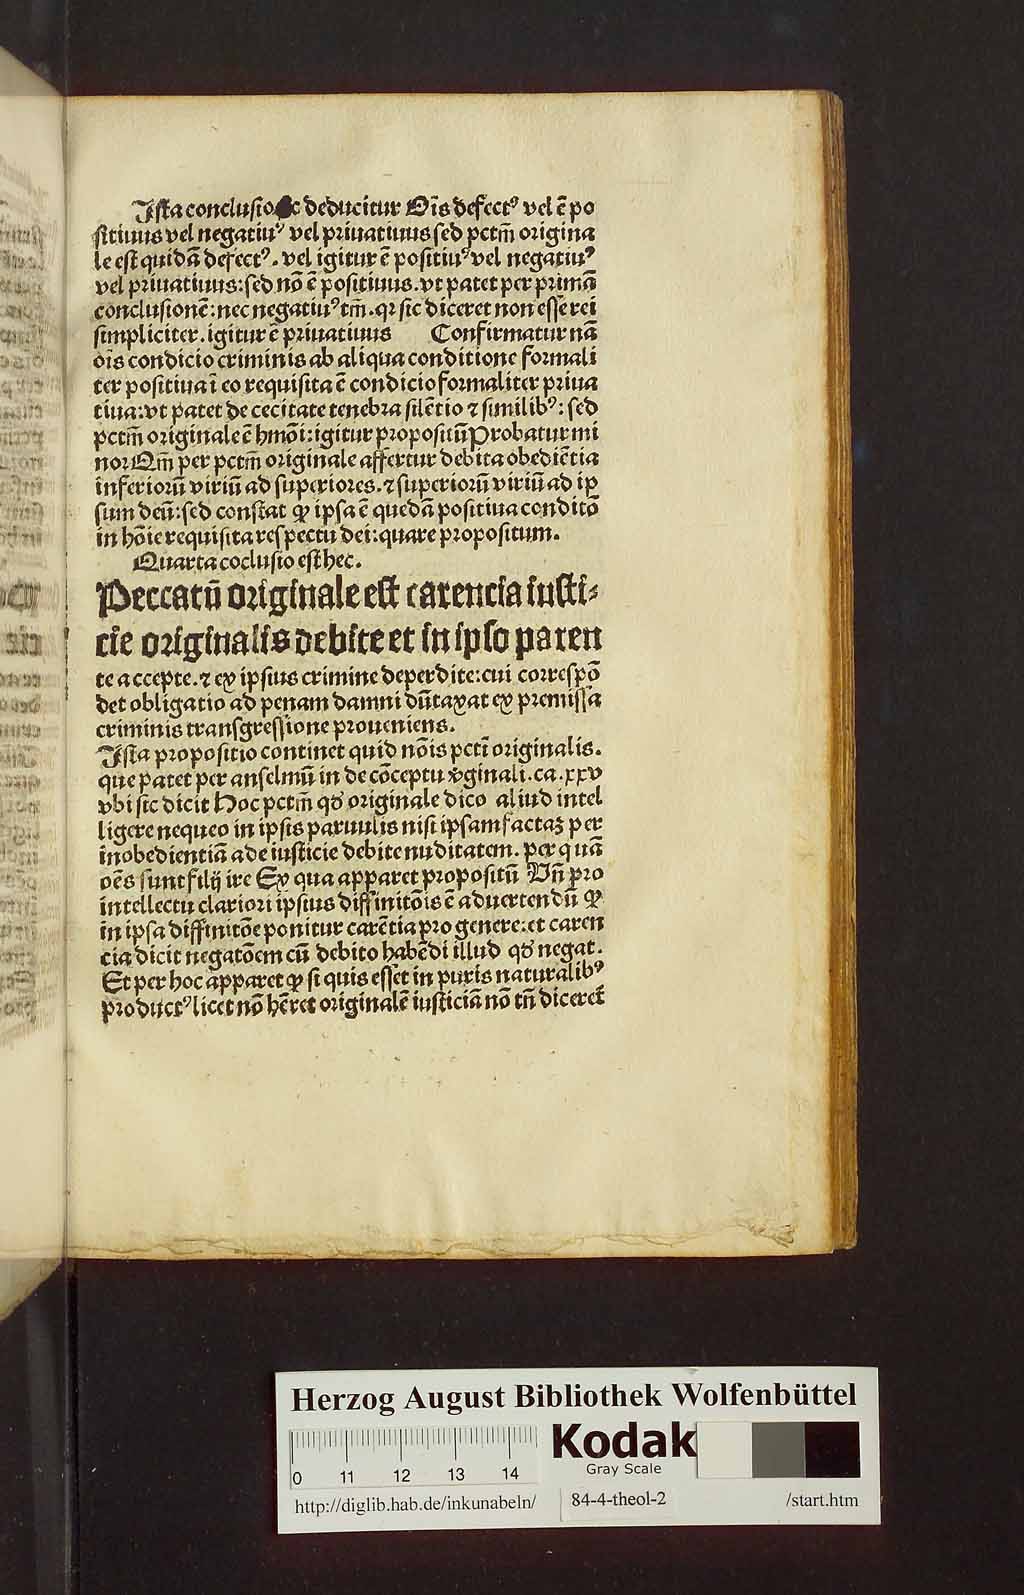 Ista conclusio c deducitur Oīs defectꝰ vel ē po
sitiuus vel negatiuꝰ vel priuatiuus sed pctm̄ origina
le est quidā defectꝰ. vel igitur ē positiuꝰ vel negatiuꝰ
vel priuatiuus: sed nō ē positiuus. vt patet per primā
conclusionē: nec negatiuꝰ tm̄. qꝛ sic diceret non esse rei
simpliciter. igitur ē priuatiuus Confirmatur nā
oīs condicio criminis ab aliqua conditione formali
ter positiua ī eo requisita ē condicio formaliter priua
tiua: vt patet de cecitate tenebra silētio ⁊ similibꝰ: sed
pctm̄ originale ē hmōi: igitur propositū Probatur mi
nor Qm̄ per pctm̄ originale affertur debita obediētia
inferiorū viriū ad superiores. ⁊ superiorū viriū ad ip
sum deū: sed constat ꝙ ipsa ē quedā positiua conditō
in hōie requisita respectu dei: quare propositum.
Quarta coclusio est hec.
Peccatū originale est carencia iusti⸗
cie originalis debite et in ipso paren
te accepte. ⁊ ex ipsius crimine deperdite: cui correspō
det obligatio ad penam damni dūtaxat ex premissa
criminis transgressione proueniens.
Ista propositio continet quid nōis pctī originalis.
que patet per anselmū in de cōceptu v̄ginali. ca. xxv
vbi sic dicit Hoc pctm̄ qđ originale dico aliud intel
ligere nequeo in ipsis paruulis nisi ipsam factaꝫ per
inobedientiā ade iusticie debite nuditatem. per quā
oēs sunt filij ire Ex qua apparet propositū Vn̄ pro
intellectu clariori ipsius diffinitōis ē aduertendū ꝙ
in ipsa diffinitōe ponitur carētia pro genere: et caren
cia dicit negatōem cū debito habēdi illud qđ negat.
Et per hoc apparet ꝙ si quis esset in puris naturalibꝰ
productꝰ licet nō hēret originalē iusticiā nō tn̄ diceret̄
Herzog August Bibliothek Wolfenbüttel
0 11 12 13 14
Kodak
Gray Scale
http://diglib.hab.de/inkunabeln/ 84-4-theol-2 /start.htm